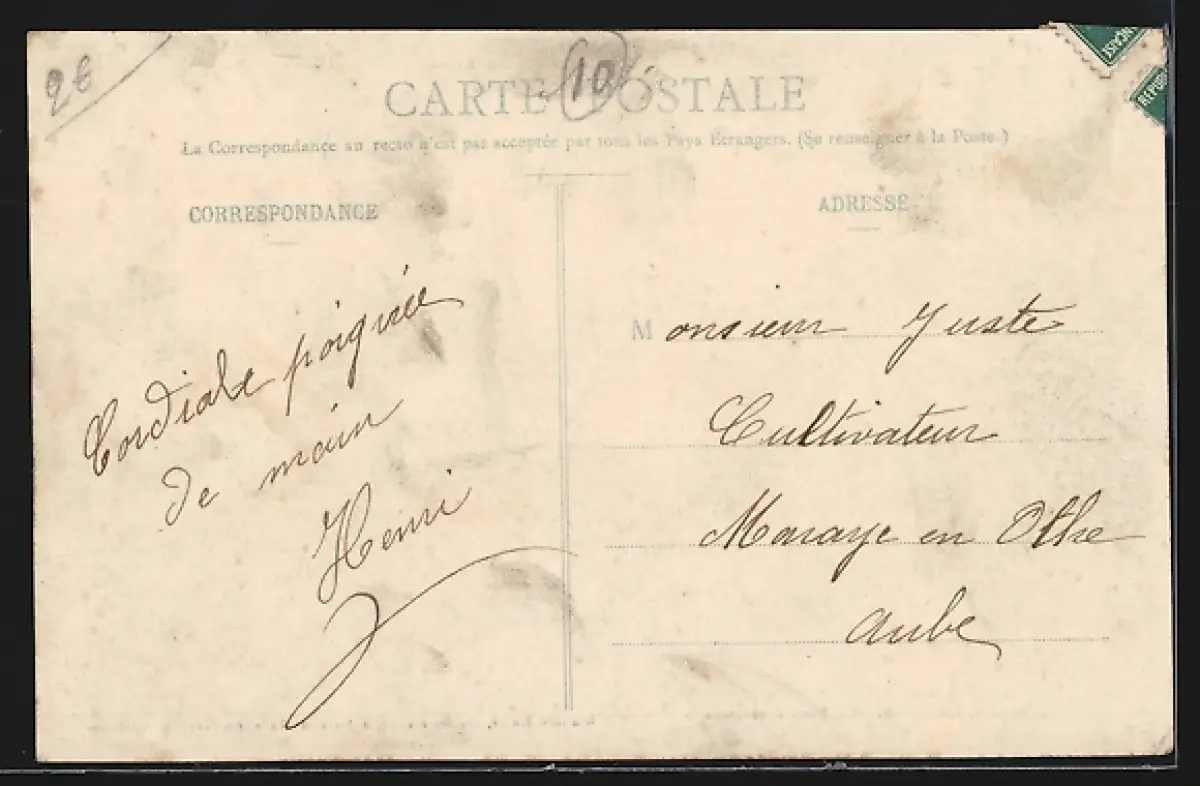 2€
10
NÇAISE
REPUB
CARTE POSTALE
La Correspondance au recto n'est pas acceptée par tous les Pays Etrangers. (Se renseigner à la Poste.)
CORRESPONDANCE
Cordiale poignée
de main
Henri
ADRESSE
Monsieur Juste
Cultivateur
Maraye en Othe
Aube